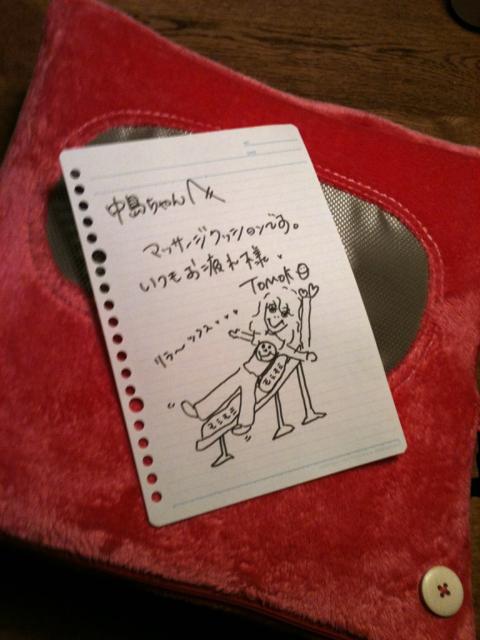 中島ちゃんへ
マッサージクッションです。
いつもお疲れ様。
TOMOKO
リラ〜ックス・・・
モミモミ
モミモミ